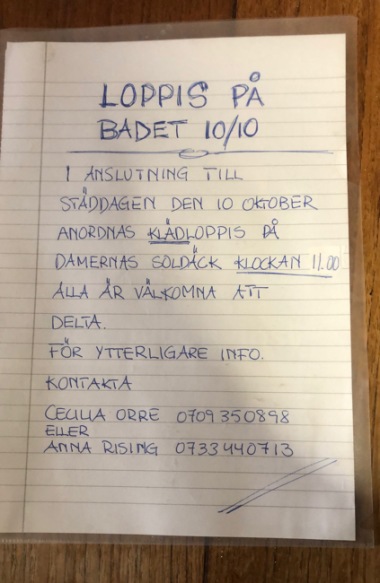 LOPPIS PÅ
BADET 10/10
I ANSLUTNING TILL
STÄDDAGEN DEN 10 OKTOBER
ANORDNAS KLÄDLOPPIS PÅ
DAMERNAS SOLDÄCK KLOCKAN 11.00
ALLA ÄR VÄLKOMNA ATT
DELTA.
FÖR YTTERLIGARE INFO.
KONTAKTA
CECILIA ORRE 0709350898
ELLER
ANNA RISING 0733440713